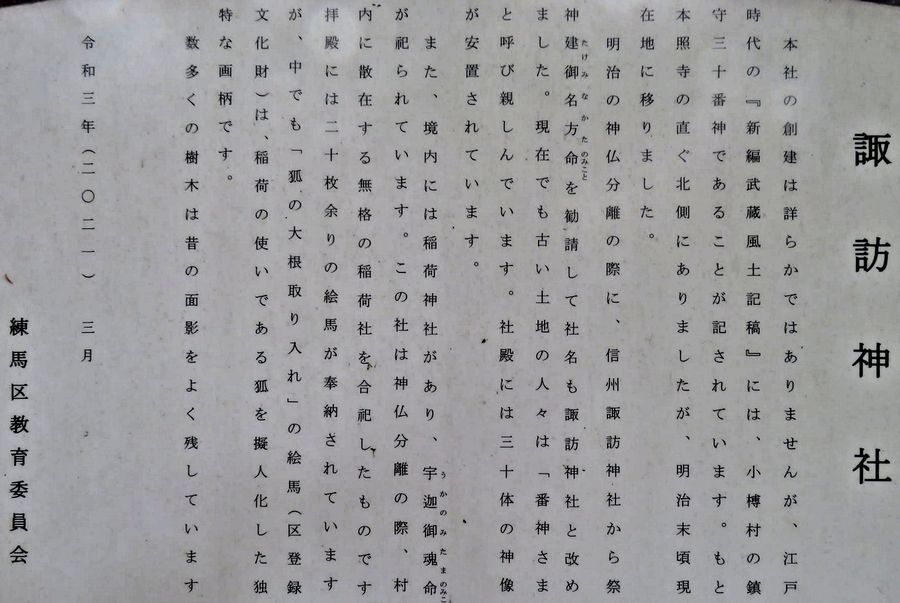 諏訪神社
本社の創建は詳らかではありませんが、江戸
時代の『新編武蔵風土記稿』には、小榑村の鎮
守三十番神であることが記されています。もと
本照寺の直ぐ北側にありましたが、明治末頃現
在地に移りました。
明治の神仏分離の際に、信州諏訪神社から祭
神建御名方命を勧請して社名も諏訪神社と改め
ました。現在でも古い土地の人々は「番神さま」
と呼び親しんでいます。社殿には三十体の神像
が安置されています。
また、境内には稲荷神社があり、宇迦御魂命
が祀られています。この社は神仏分離の際、村
内に散在する無格の稲荷社を合祀したものです。
拝殿には二十枚余りの絵馬が奉納されています
が、中でも「狐の大根取り入れ」の絵馬(区登録
文化財)は、稲荷の使いである狐を擬人化した独
特な画柄です。
数多くの樹木は昔の面影をよく残しています
令和三年(二〇二一)三月
練馬区教育委員会